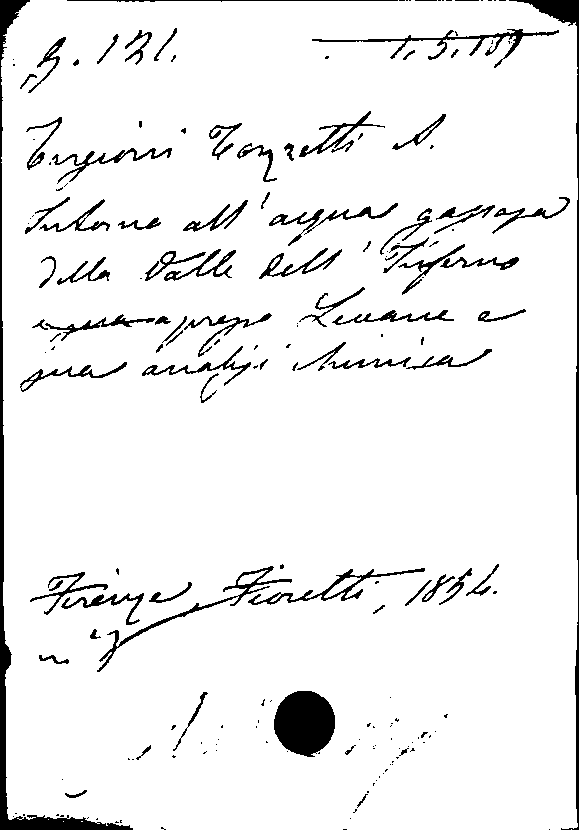 B. 121. 1.5.189
Targioni Tozzetti A.
Intorno all'acqua gassosa
della Valle dell'Inferno
presso Levane e
sua analisi chimica
Firenze, Fioretti, 1854.
in